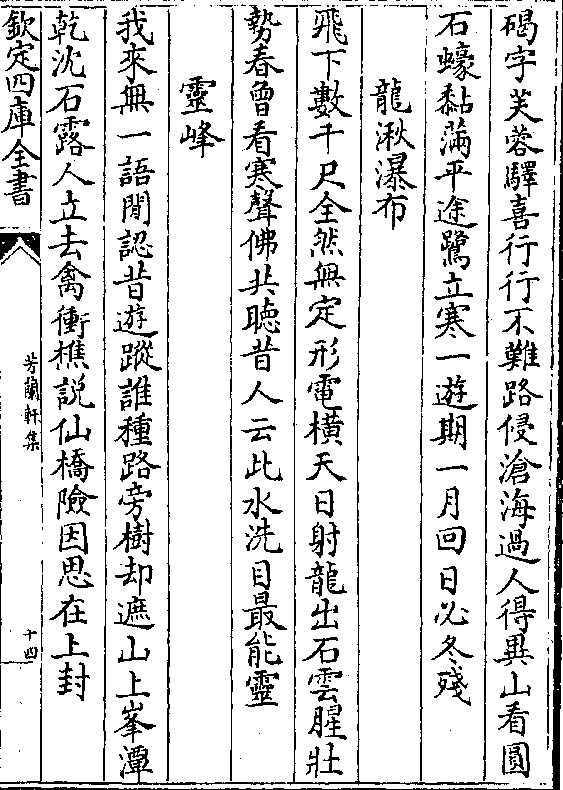 碣字芙蓉驛喜行行不難路侵滄海過人得異山看圓
石蠔黏滿平途鷺立寒一遊期一月回日必冬殘
龍湫瀑布
飛下數千尺全然無定形電橫天日射龍出石雲腥壯
勢春曾看寒聲佛共聴昔人云此水洗目最能靈
靈峰
我來無一語閒認昔遊蹤誰種路旁樹却遮山上峯潭
乾沈石露人立去禽衝樵説仙橋險因思在上封
欽定四庫全書
芳蘭軒集
十四